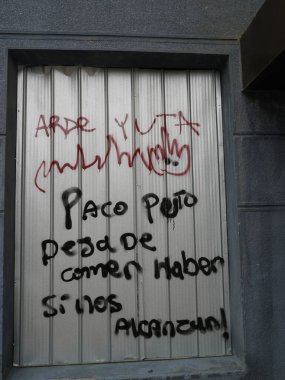 ARDE YUTA
Paco Puto
Deja De
comer Haber
Si nos
Alcanzan!